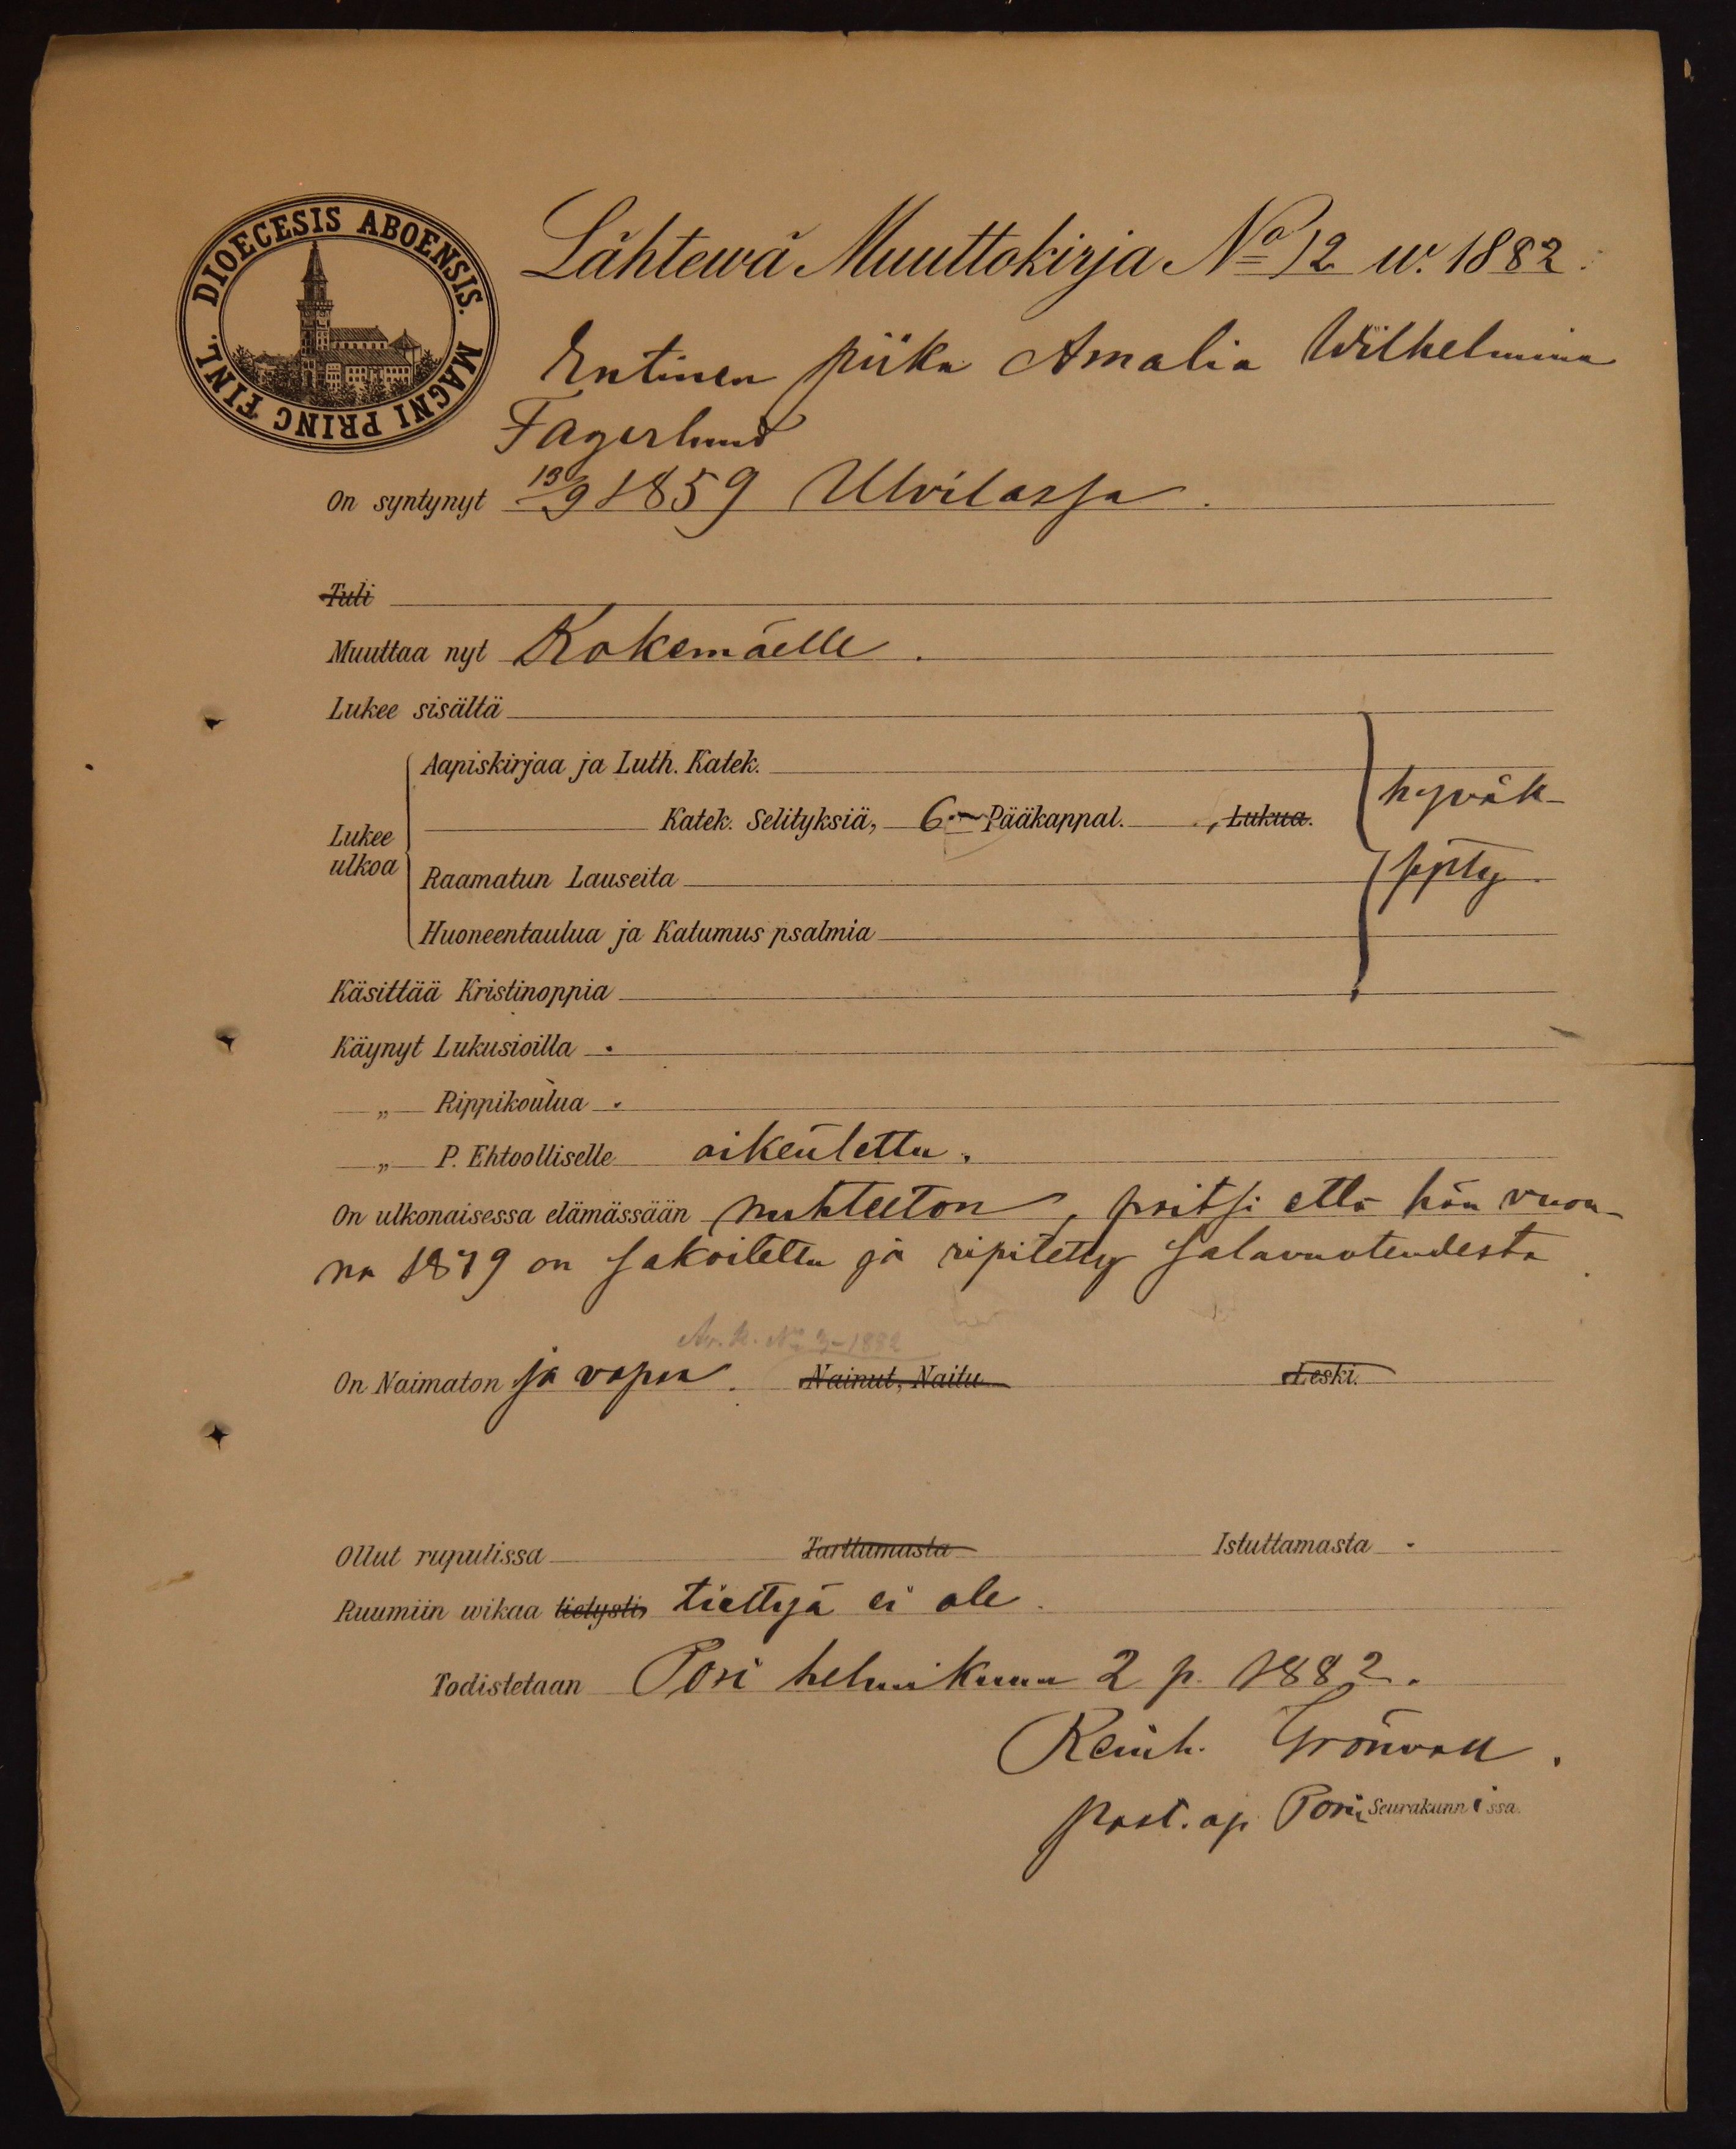 DIOECESIS ABOENSIS. MAGNI PRINC FINL.
Lähtewä Muuttokirja No 12 w. 1882.
Entinen piika Amalia Wilhelmina
Fagerlund
On syntynyt 19/9 1859 Ulvilassa.
Tuli
Muuttaa nyt Kokemäelle.
Lukee sisältä
Aapiskirjaa ja Luth. Katek.
Katek. Selityksiä, 6 Pääkappal. , Lukua. hyväk-
Lukee ulkoa
Raamatun Lauseita sytty
Huoneentaulua ja Katumus psalmia
Käsittää Kristinoppia
Käynyt Lukusioilla
„ Rippikoulua
„ P. Ehtoolliselle oikeutettu.
On ulkonaisessa elämässään nuhteeton, paitsi että hän vuon-
na 1879 on sakoitettu ja ripitetty salavuoteudesta
Av. k. No 3-1882
On Naimaton ja vapaa. Nainut, Naitu Leski.
Ollut rupulissa Tarttumasta Istuttamasta
Ruumiin wikaa tietysti tiettyä ei ole.
Todistetaan Pori helmikuun 2 p. 1882.
Reinh. Grönvall.
past. ap. Porin Seurakunnissa.